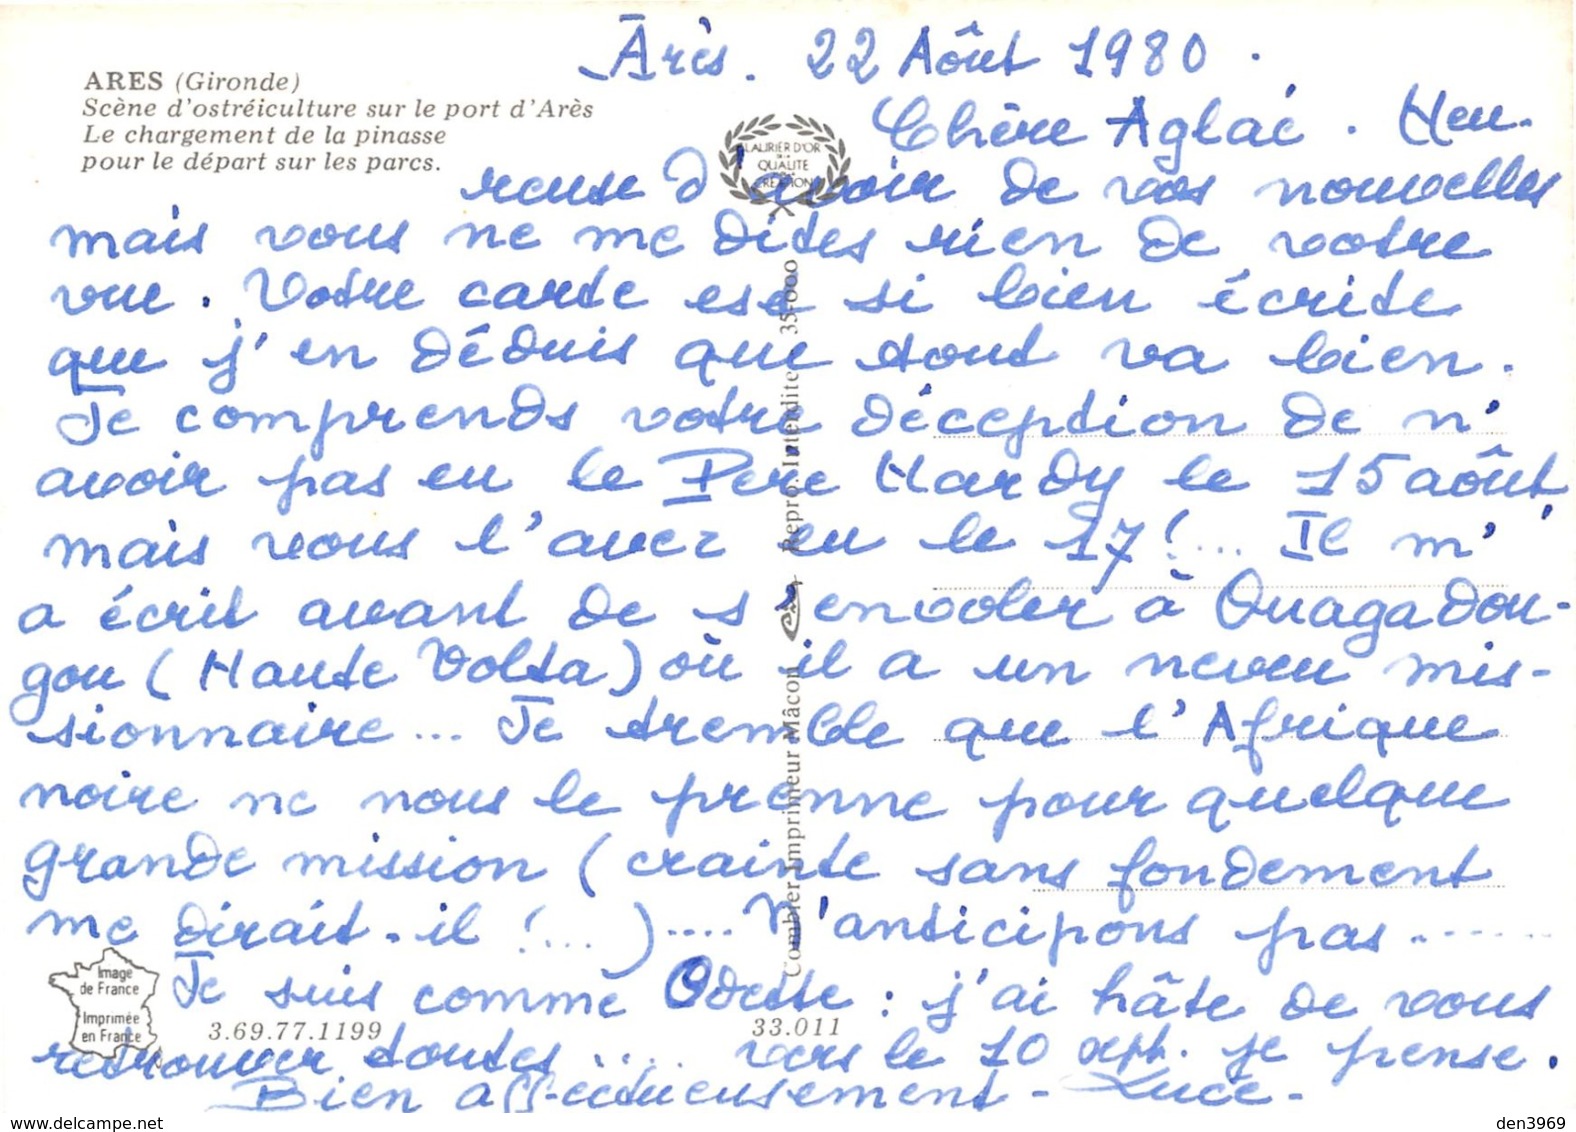 Arès. 22 Août 1980.
ARES (Gironde)
Scène d'ostréiculture sur le port d'Arès
Le chargement de la pinasse
pour le départ sur les parcs.
LAURIER D'OR
DE LA
QUALITE
CREATION
Chère Aglaé. Heu-
reuse d'avoir de vos nouvelles
mais vous ne me dites rien de votre
vue. Votre carte est si bien écrite
que j'en déduis que tout va bien.
Je comprends votre déception de n'
avoir pas eu le Père Hardy le 15 août,
mais vous l'avez eu le 17 !... Il m'
a écrit avant de s'envoler à Ouagadou-
gou (Haute Volta) où il a un neveu mis-
sionnaire... Je tremble que l'Afrique
noire ne nous le prenne pour quelque
grande mission (crainte sans fondement
me dirait-il !...).... N'anticipons pas.......
Je suis comme Odette : j'ai hâte de vous
retrouver toutes .... vers le 10 sept. je pense.
Bien affectueusement - Luce -
Combier Imprimeur Mâcon
Repro. Interdite 35-000
Image
de France
Imprimée
en France
3.69.77.1199
33.011
den3969